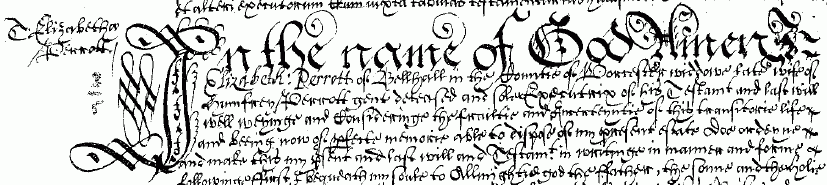 T. Elizabethe
Perrott
In the name of God Amen I
Elizabeth Perrott of Bellhall in the Countie of Worcester widowe late wife of
Humfrey Perrott gent deceased and sole Executrix of his Testamt and last will
well weyinge and Consideringe the frailtie and incertentie of this transitorie life
and beeing now of pfecte memorie able to dispose of my present estate doe ordeyne
and make this my psent and last will and Testamt in writinge in manner and forme
followinge ffirst I bequeath my soule to Allmightie god the ffather, the sonne and the holie